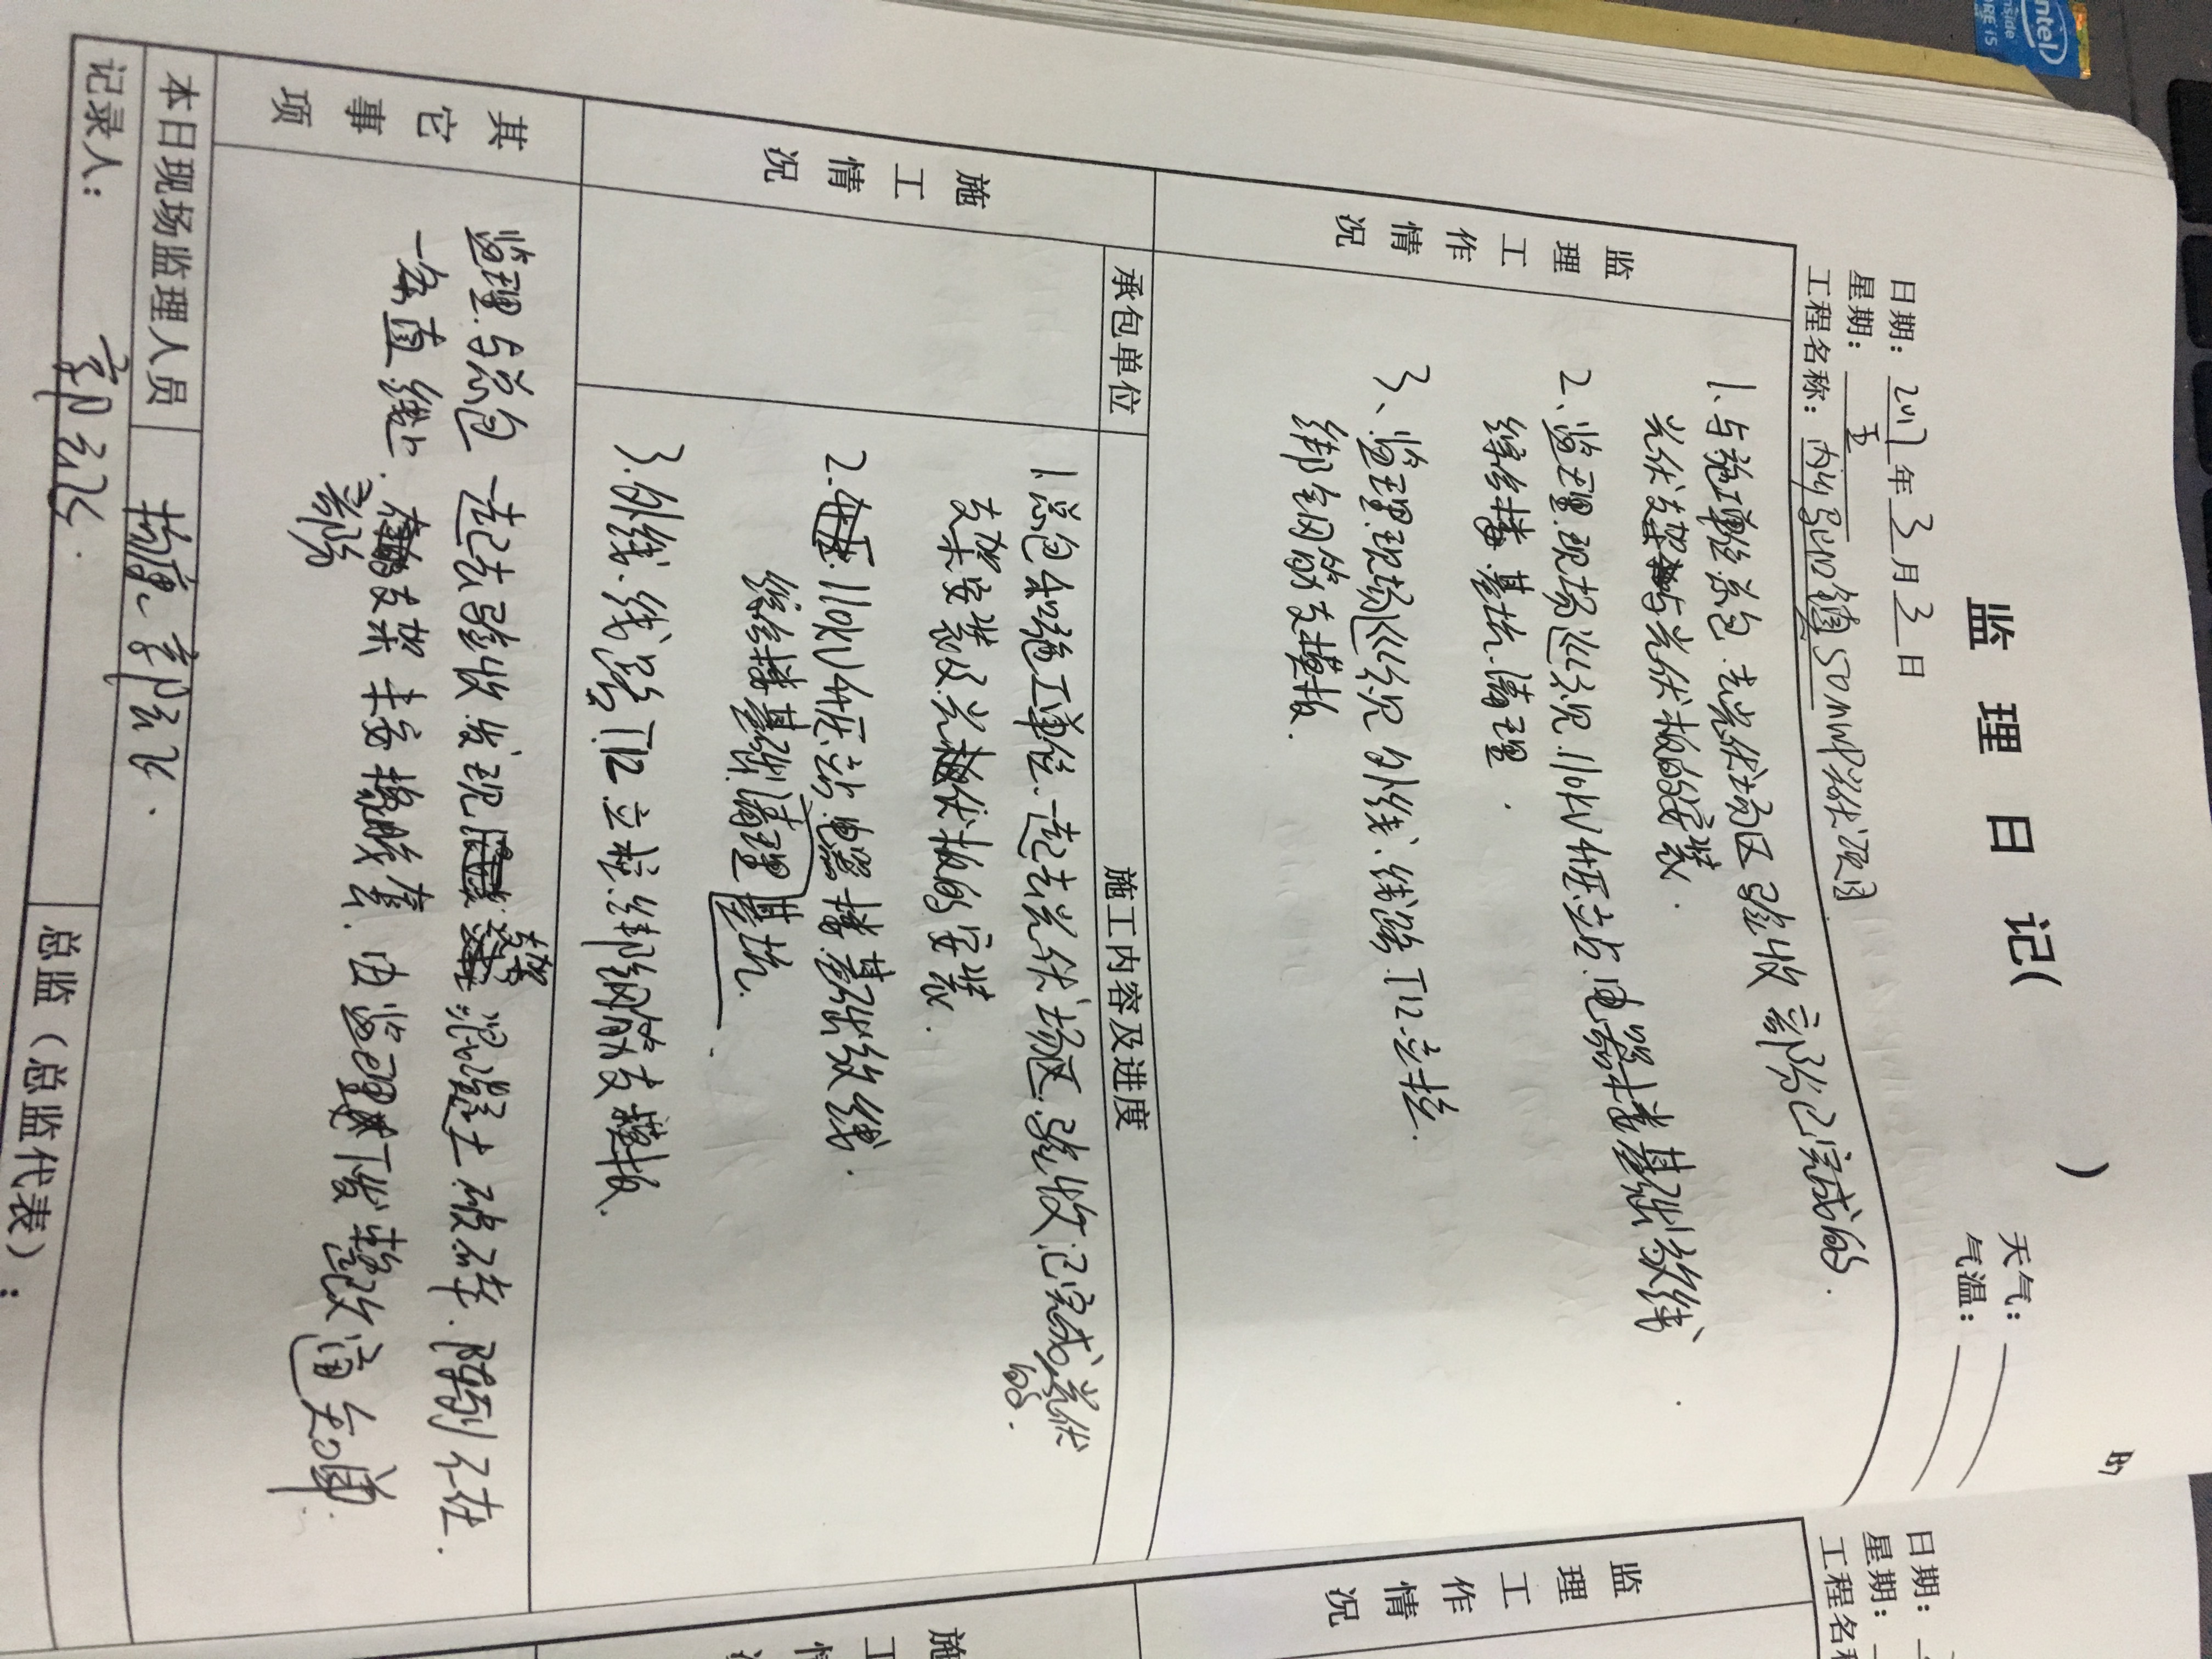 监理日记( )
B7
日期：2017年3月3日
天气：
星期：五
气温：
工程名称：内丘县 镇50MWP光伏项目
监理工作情况
1.与施工单位总包.去光伏场区验收部份已完成的.
光伏支架与光伏板的安装.
2、监理现场巡视110kV升压站.电器楼基础放线
综合楼基坑清理.
3、监理现场巡视外线.线路T12.立柱.
绑钢筋支模板.
施工情况
承包单位
施工内容及进度
1.总包和施工单位.一起去光伏场区.验收已完成光伏的.
支架安装及光伏板的安装.
2.升压.110kV升压站电器楼基础放线.
综合楼基础清理基坑.
3.外线.线路T12.立柱.绑钢筋支模板.
其它事项
监理与总包一起去验收发现支架混凝土破碎.阵列不在.
一条直线上.部份支架未按 由监理下发整改通知单
本日现场监理人员
杨康 郭云飞.
记录人：郭云飞.
总监（总监代表）：
日期：
星期：
工程名称
监理工作情况
施工情况
intel
inside
CORE i5